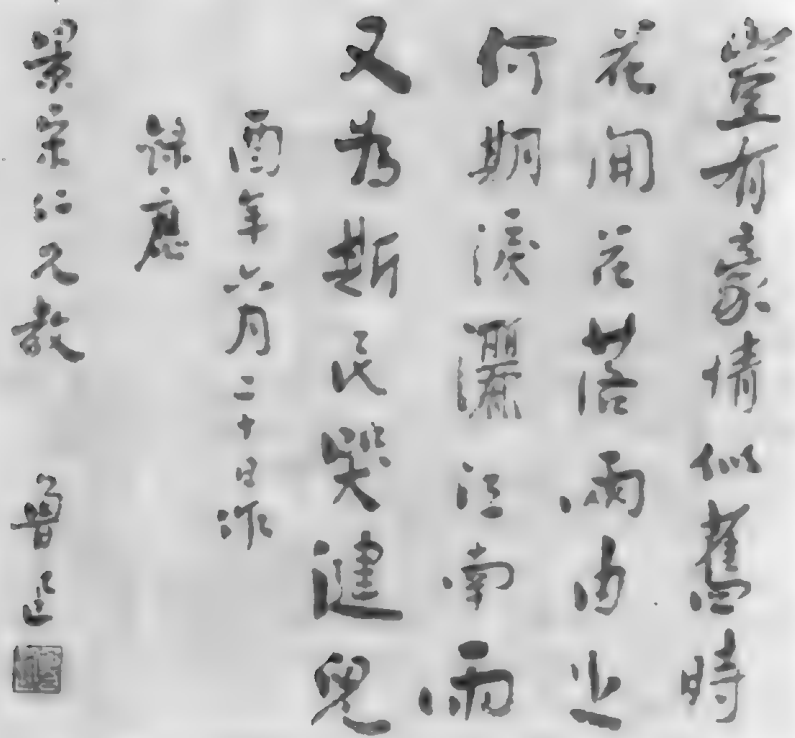 豈有豪情似舊時
花開花落兩由之
何期淚灑江南雨
又為斯民哭健兒
酉年六月二十日作
錄應
景宋仁兄教 魯迅